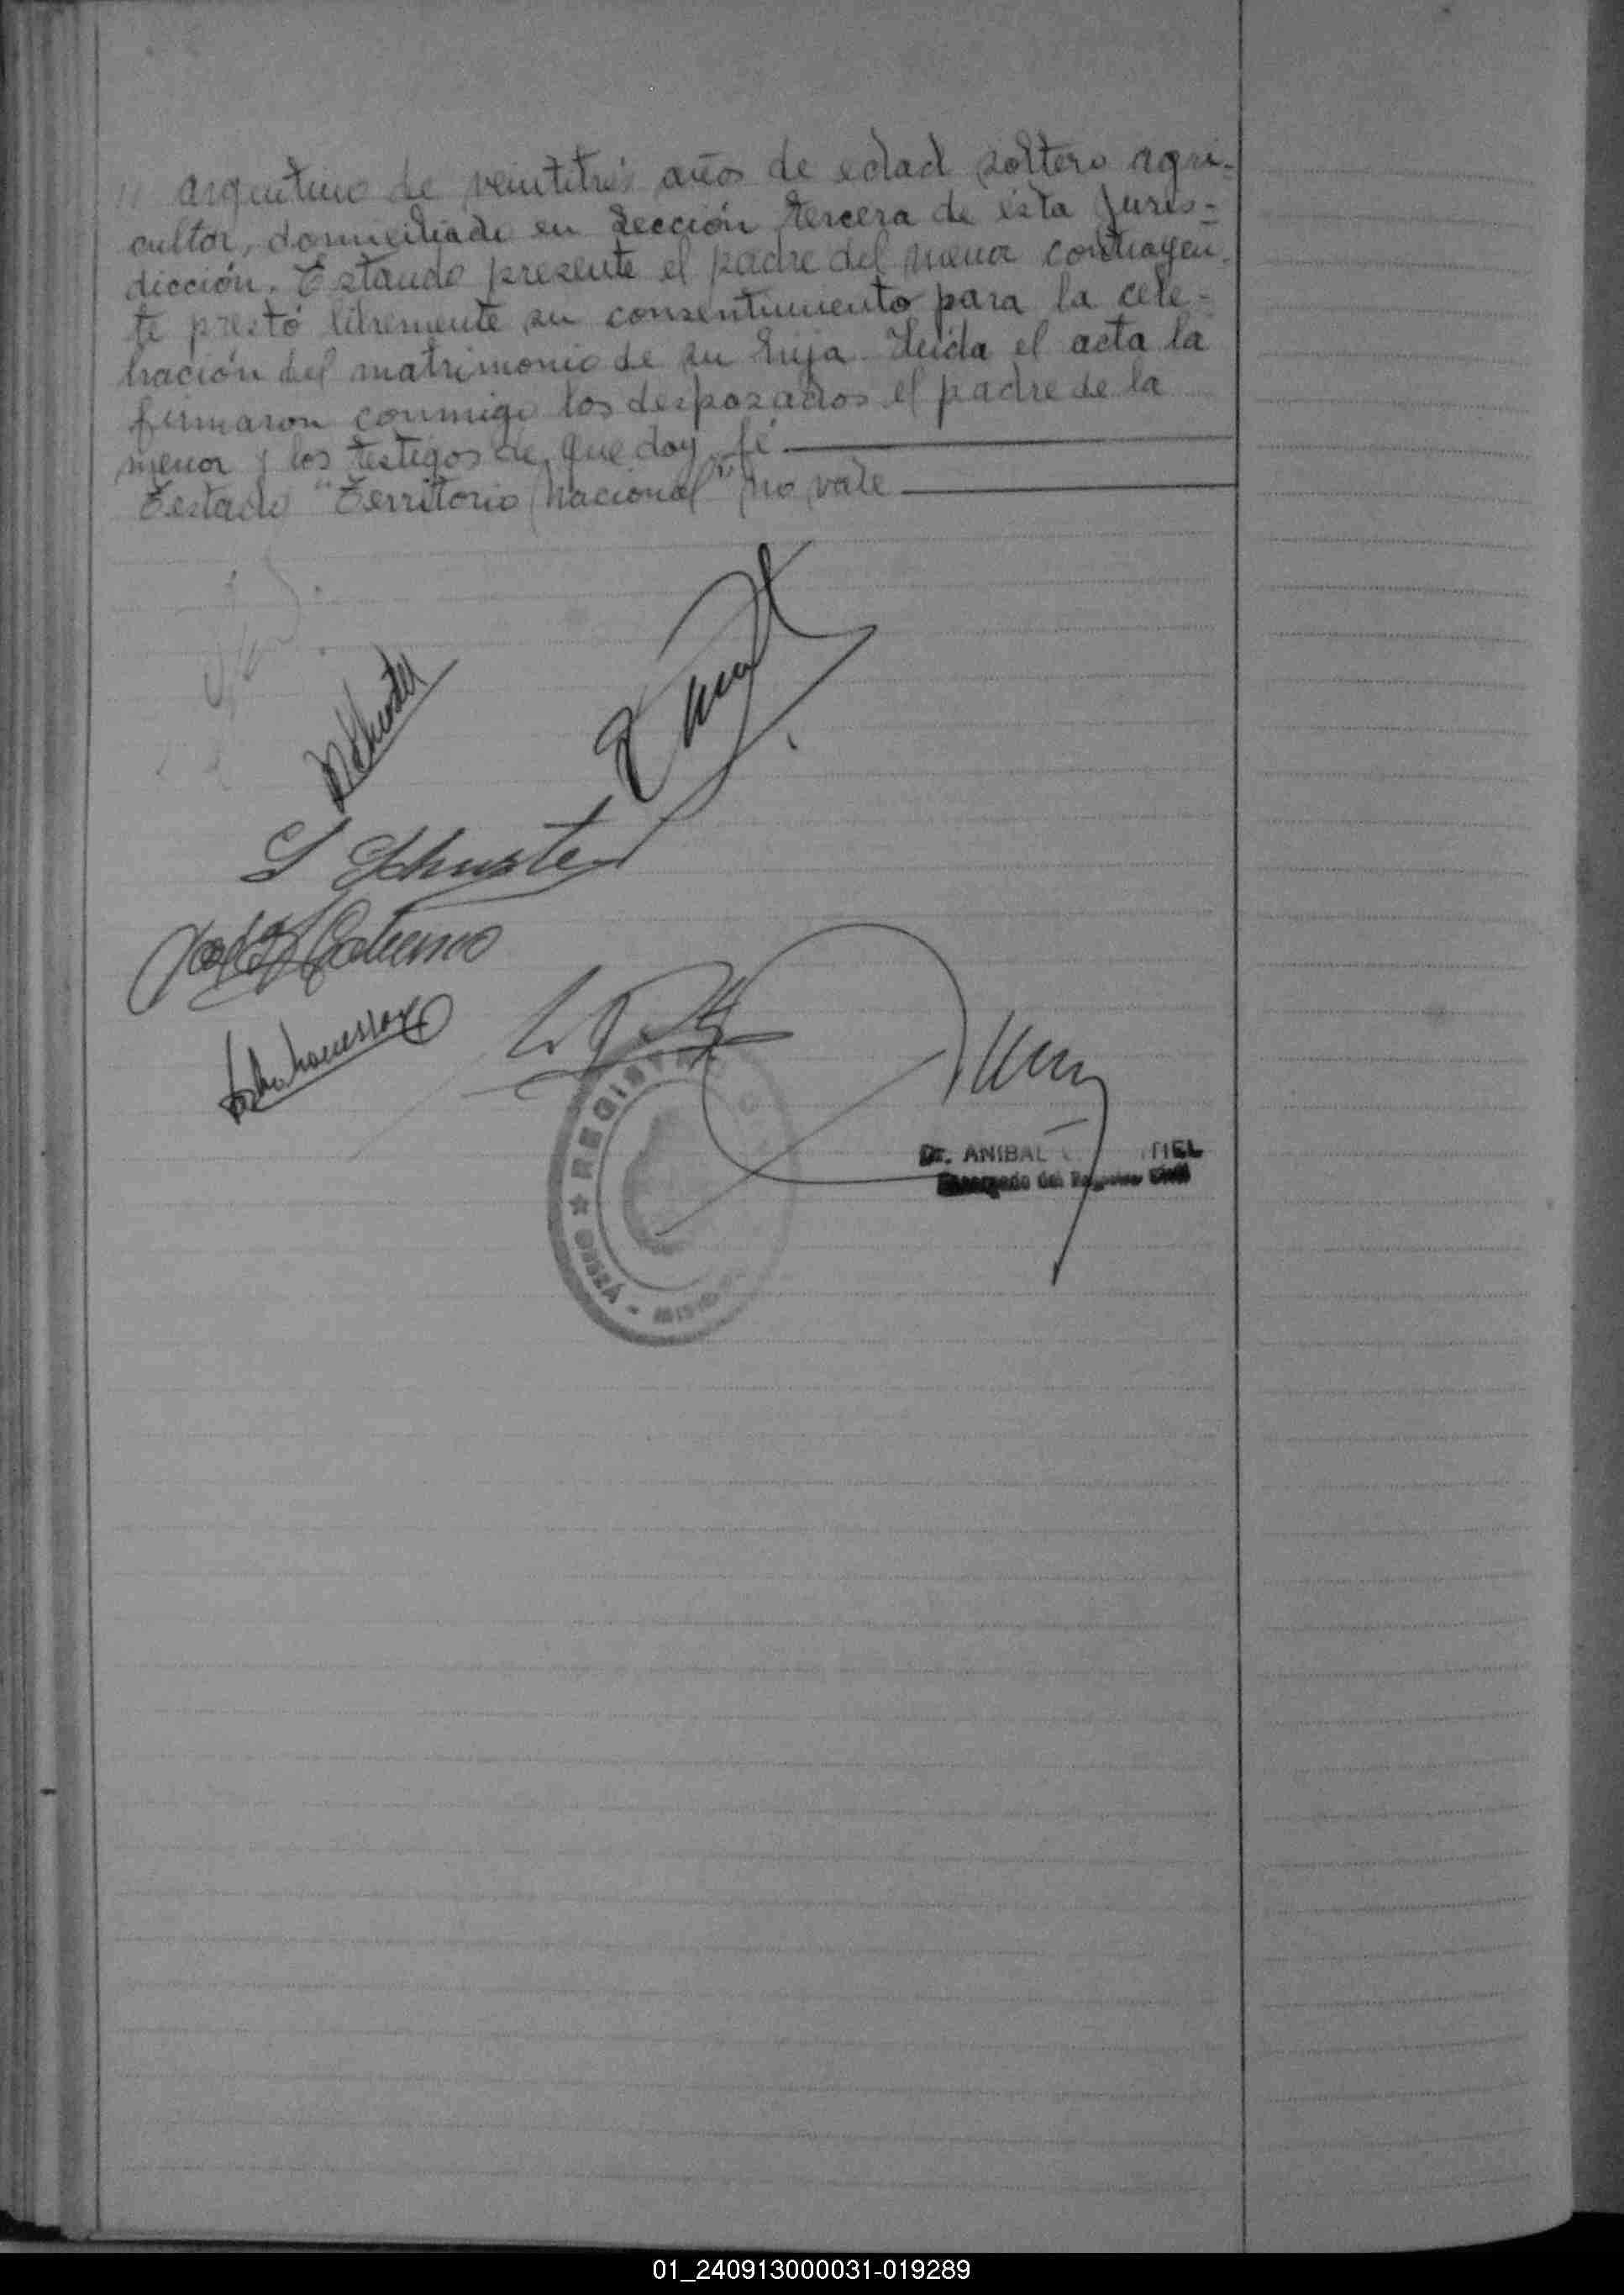 " argentino de veintitrés años de edad soltero agri-
cultor, domiciliado en Sección tercera de ésta Juris-
dicción. Estando presente el padre del menor contrayen-
te prestó libremente su consentimiento para la cele-
bración del matrimonio de su hija. Leída el acta la
firmaron conmigo los desposados el padre de la
menor y los testigos de que doy fé
Testado "Territorio Nacional" no vale
Schuster
S Schuster
REGISTRO
Dr. ANIBAL TIEL
Encargado del Registro Civil
01_240913000031-019289